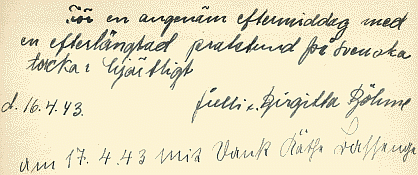 För en angenäm eftermiddag med
en efterlängtad pratstund på svenska
tackar hjärtligt
d. 16.4.43. Julli o. Birgitta Böhme
am 17.4.43 mit Dank Käthe